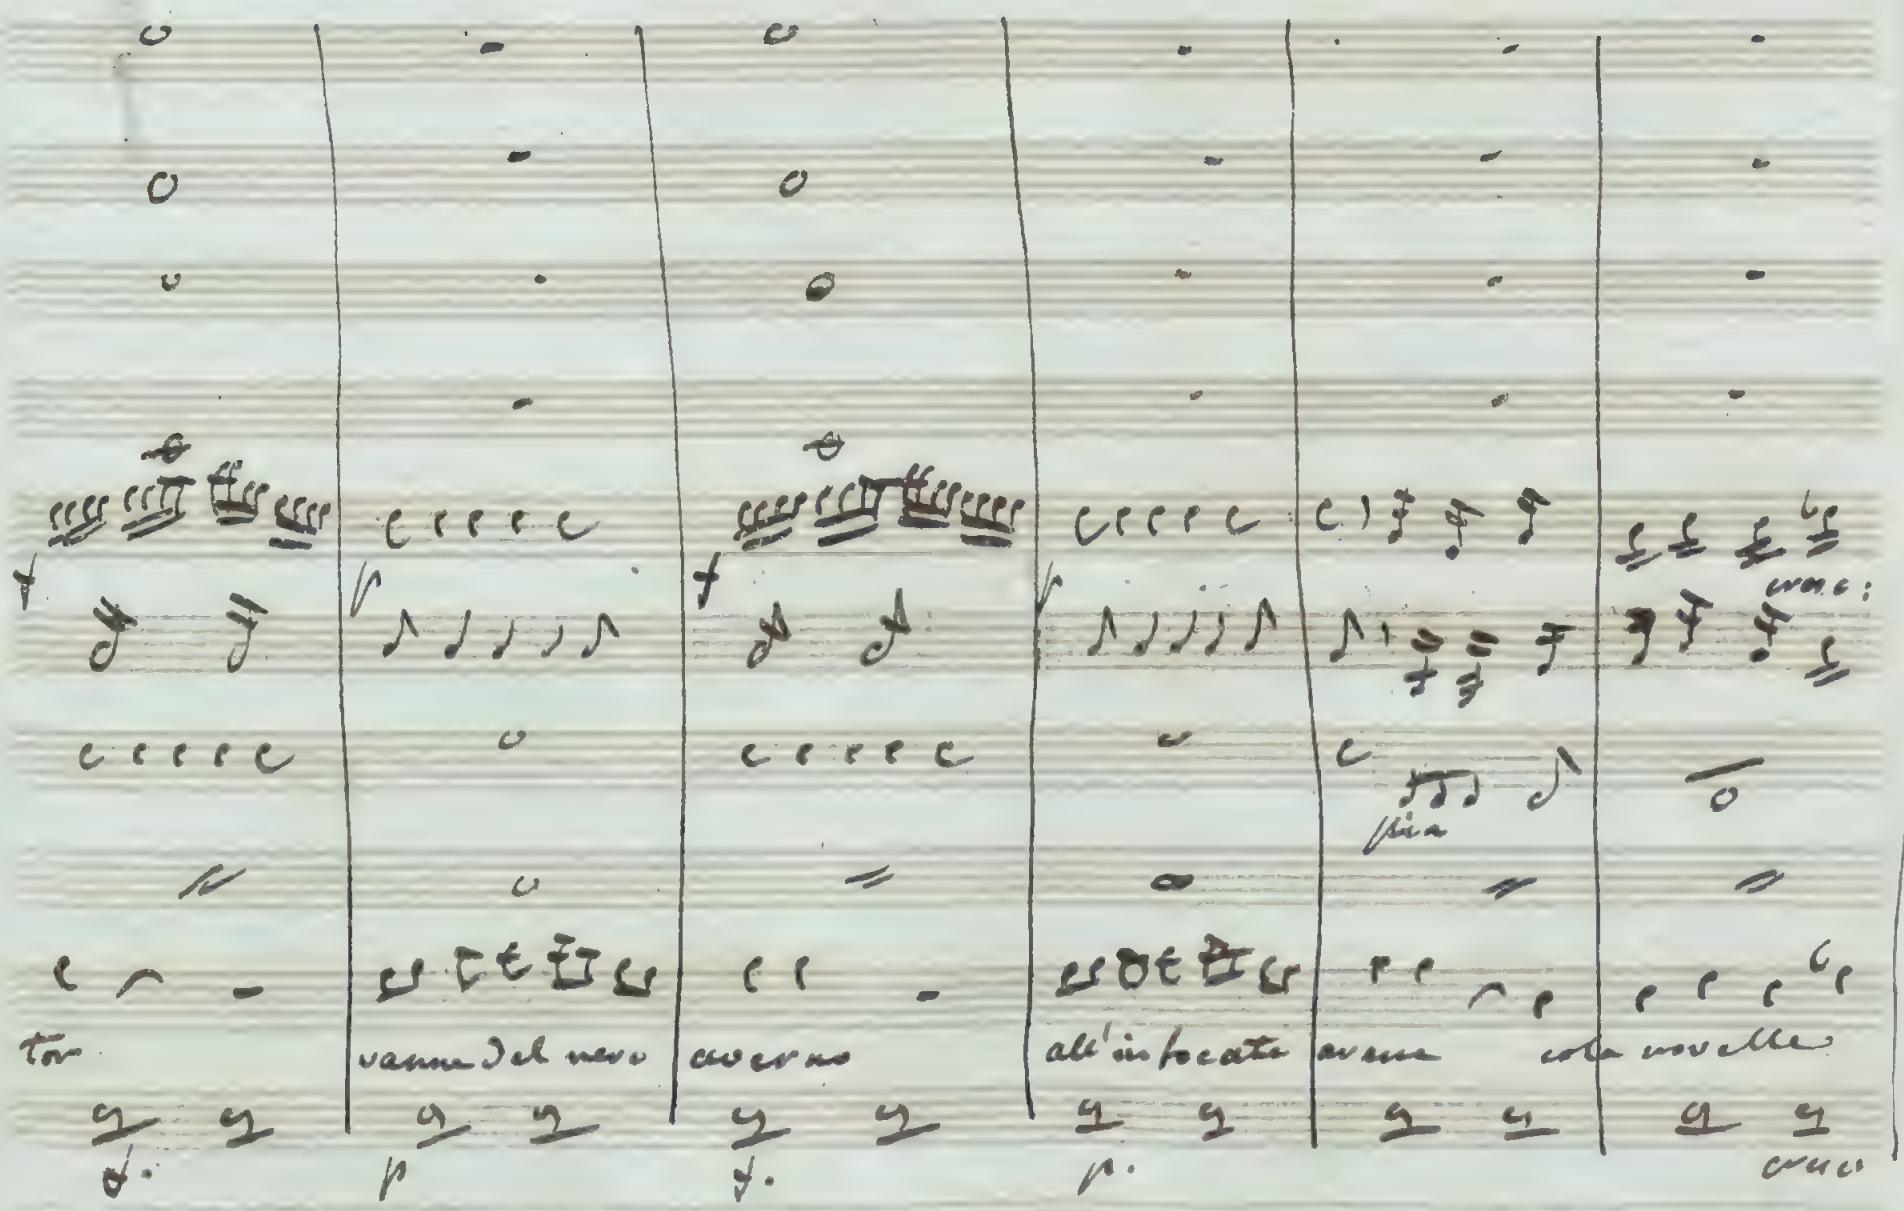 f
p
f
p
cresc:
pia
tor vanne del nero averno all'infocate arene cola novelle
f. p f. p. cresc